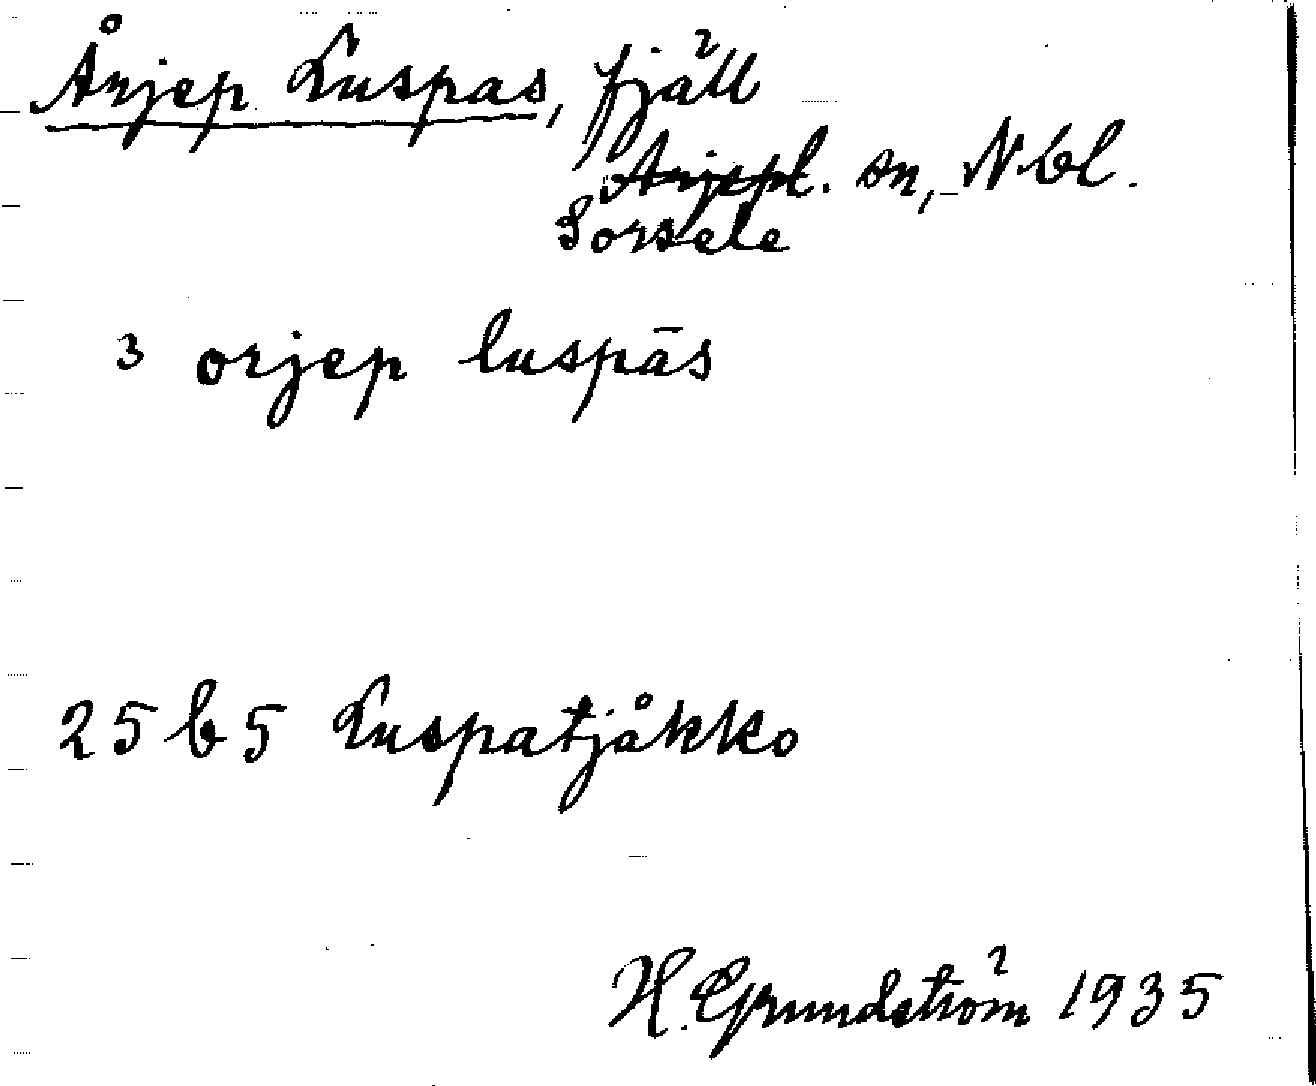 Årjep Luspas, fjäll
Arjepl. sn, Nbl.
Sorsele
3 orjep luspās
25 b 5 Luspatjåkko
H. Grundström 1935